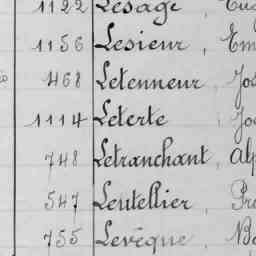 1122 Lesage, Eug
1156 Lesieur, Em
468 Letenneur, Jos
1114 Leterte, Jo
748 Letranchant, Alp
547 Leutellier, Pr
755 Levêque, B